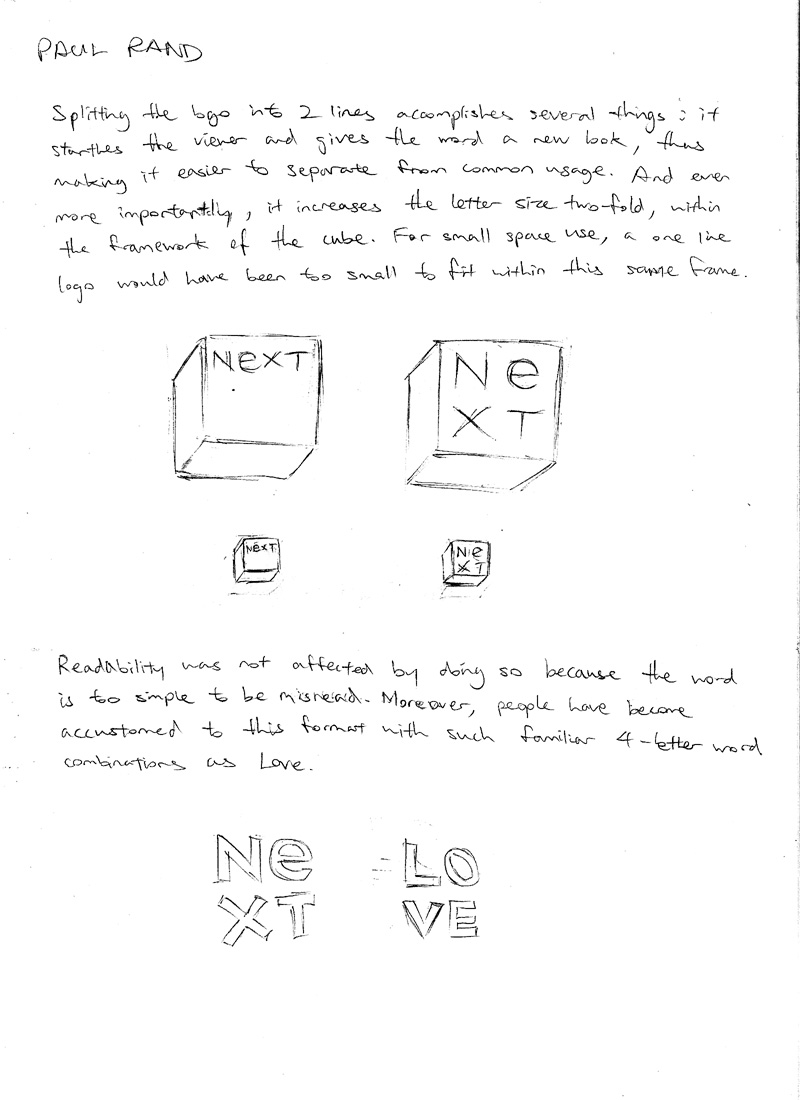 PAUL RAND
Splitting the logo into 2 lines accomplishes several things : it
startles the viewer and gives the word a new look, thus
making it easier to separate from common usage. And even
more importantly, it increases the letter size two-fold, within
the framework of the cube. For small space use, a one line
logo would have been too small to fit within this same frame.
NeXT
Ne
XT
NeXT
Ne
XT
Readability was not affected by doing so because the word
is too simple to be misread. Moreover, people have become
accustomed to this format with such familiar 4-letter word
combinations as Love.
Ne
XT
LO
VE